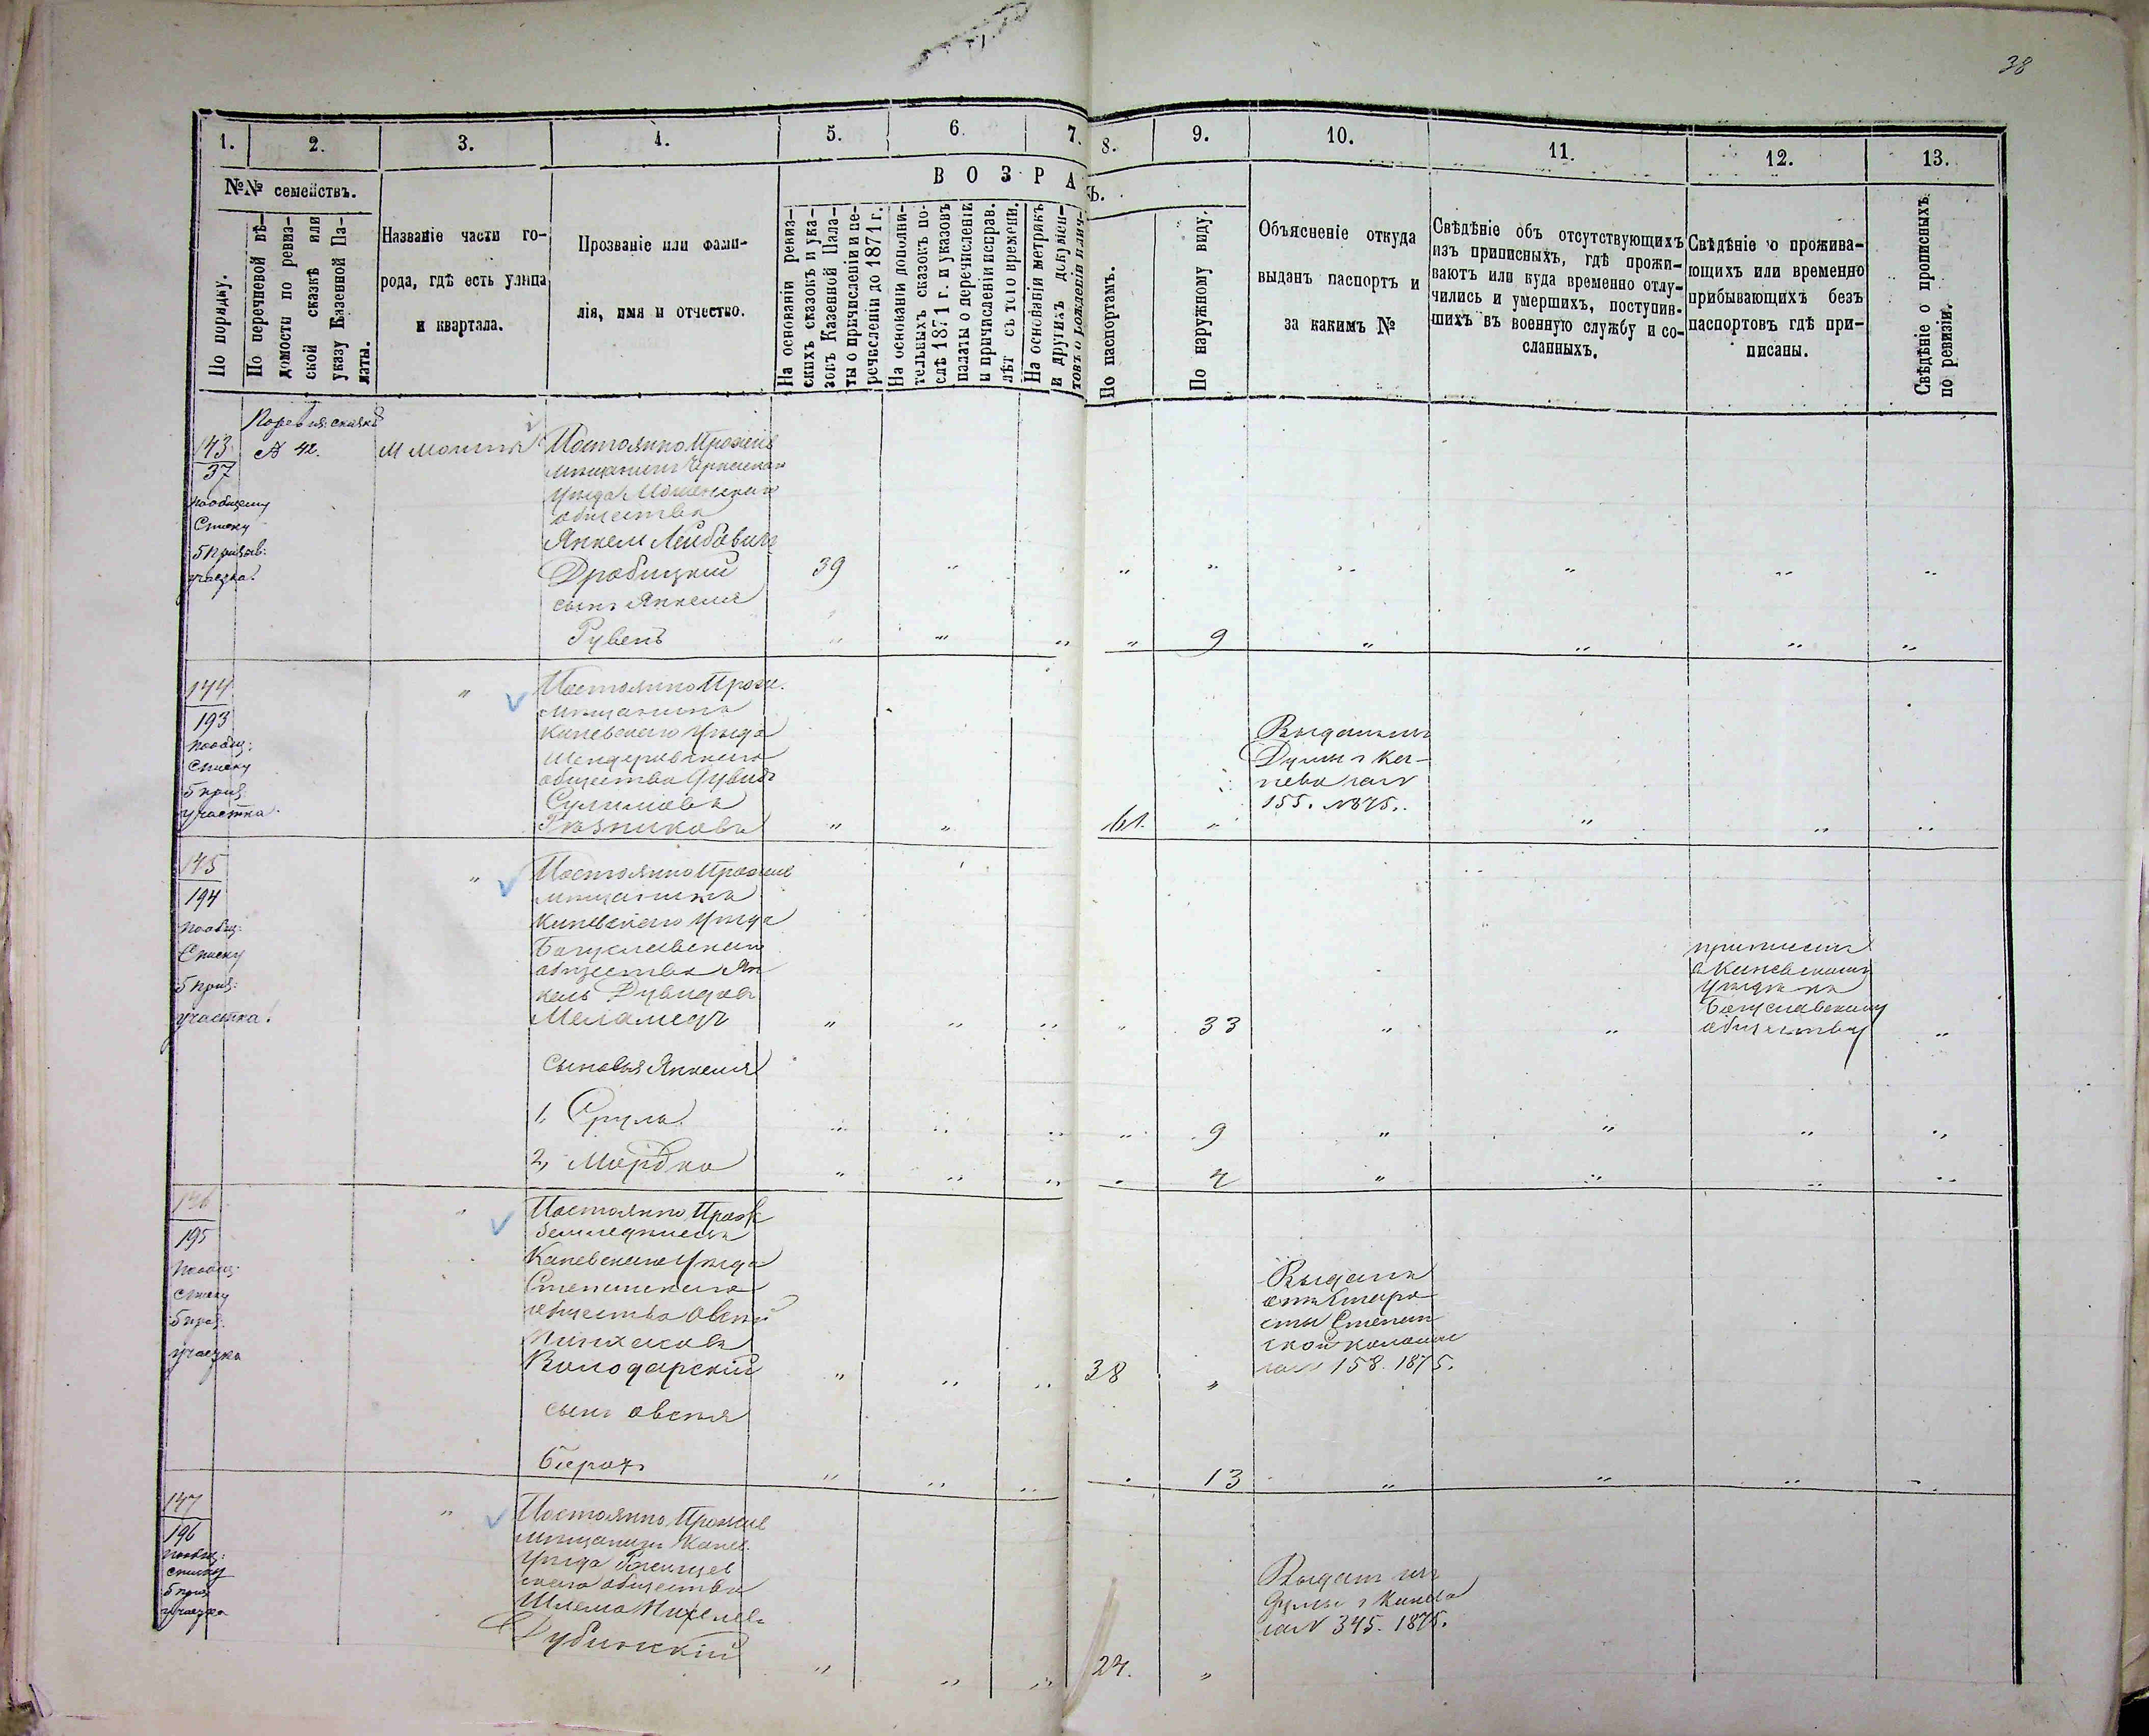 38
1. 2. 3. 4. 5. 6. 7. 8. 9. 10. 11. 12. 13.
№№ семействъ.
По порядку.
По перечневой вѣ-
домости по ревиз-
ской сказкѣ или
указу Казенной Па-
латы.
Названіе части го-
рода, гдѣ есть улица
и квартала.
Прозваніе или фами-
лія, имя и отчество.
ВОЗРА
Ъ.
На основаніи ревиз-
скихъ сказокъ и ука-
зовъ Казенной Пала-
ты о причисленіи и пе-
речисленіи до 1871 г.
На основаніи дополни-
тельныхъ сказокъ по-
слѣ 1871 г. и указовъ
палаты о перечисленіи
и причисленіи исправ.
лѣт съ того времени.
На основаніи метрикъ
и другихъ докумен-
товъ о рожденіи
По паспортамъ.
По наружному виду.
Объясненіе откуда
выданъ паспортъ и
за какимъ №
Свѣдѣніе объ отсутствующихъ
изъ приписныхъ, гдѣ прожи-
ваютъ или куда временно отлу-
чились и умершихъ, поступив-
шихъ въ военную службу и со-
сланныхъ.
Свѣдѣніе о прожива-
ющихъ или временно
прибывающихъ безъ
паспортовъ гдѣ при-
писаны.
Свѣдѣніе о прописныхъ
по ревизіи.
143
37
по общему
Списку
5 призыв:
участка.
№ 42.
Постоянно Прожив
мѣщанинъ Черкаскаго
Уѣзда Мошенскаго
общества
Янкель Лейбовичъ
Драбицкій
39
сынъ Янкеля
Рувенъ
9
144
193
по общ:
Списку
5 приз:
участка.
Постоянно Прож.
мѣщанинъ
Каневскаго Уѣзда
общества
61.
Выданъ изъ
Думы г Ка-
нева за №
155. 1875.
145
194
по общ:
Списку
5 приз:
участка.
Постоянно Прожив
мѣщанинъ
Каневскаго Уѣзда
Богуславскаго
общества Ян
кель Дувидовъ
Меламедъ
33
приписанъ
в Каневскомъ
Уѣздѣ къ
Богуславскому
обществу
Сыновья Янкеля
1, Сруль
9
2, Мордко
4
146
195
по общ:
списку
5 приз:
участка
Постоянно Прож
земледѣлецъ
Каневскаго Уѣзда
Степанскаго
общества Овсѣй
Пинхасовъ
Володарскій
38
Выданъ
отъ Старо
сты Степан
ской колоніи
за № 158. 1875.
сынъ Овсѣя
Берохъ
13
147
196
по общ:
списку
5 приз
участка
Постоянно Прожив
мѣщанинъ Канев.
Уѣзда Ржищев
скаго общества
Шлема Михелевъ
Рубинскій
24.
Выданъ изъ
Думы г Канева
за № 345. 1875.